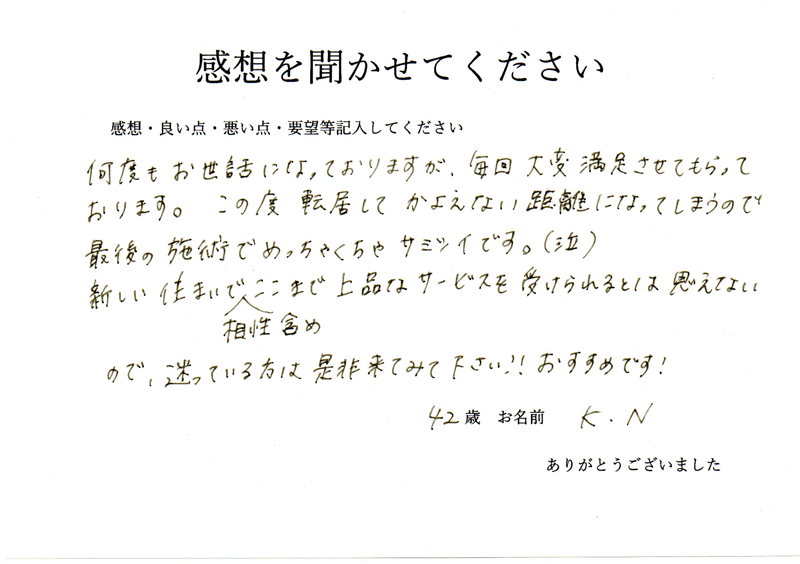 感想を聞かせてください
感想・良い点・悪い点・要望等記入してください
何度もお世話になっておりますが、毎回大変満足させてもらって
おります。この度転居してかよえない距離になってしまうので
最後の施術でめっちゃくちゃサミシイです。(泣)
新しい住まいでここまで上品なサービスを受けられるとは思えない
相性含め
ので、迷っている方は是非来てみて下さい!!おすすめです!
42歳 お名前 K.N
ありがとうございました